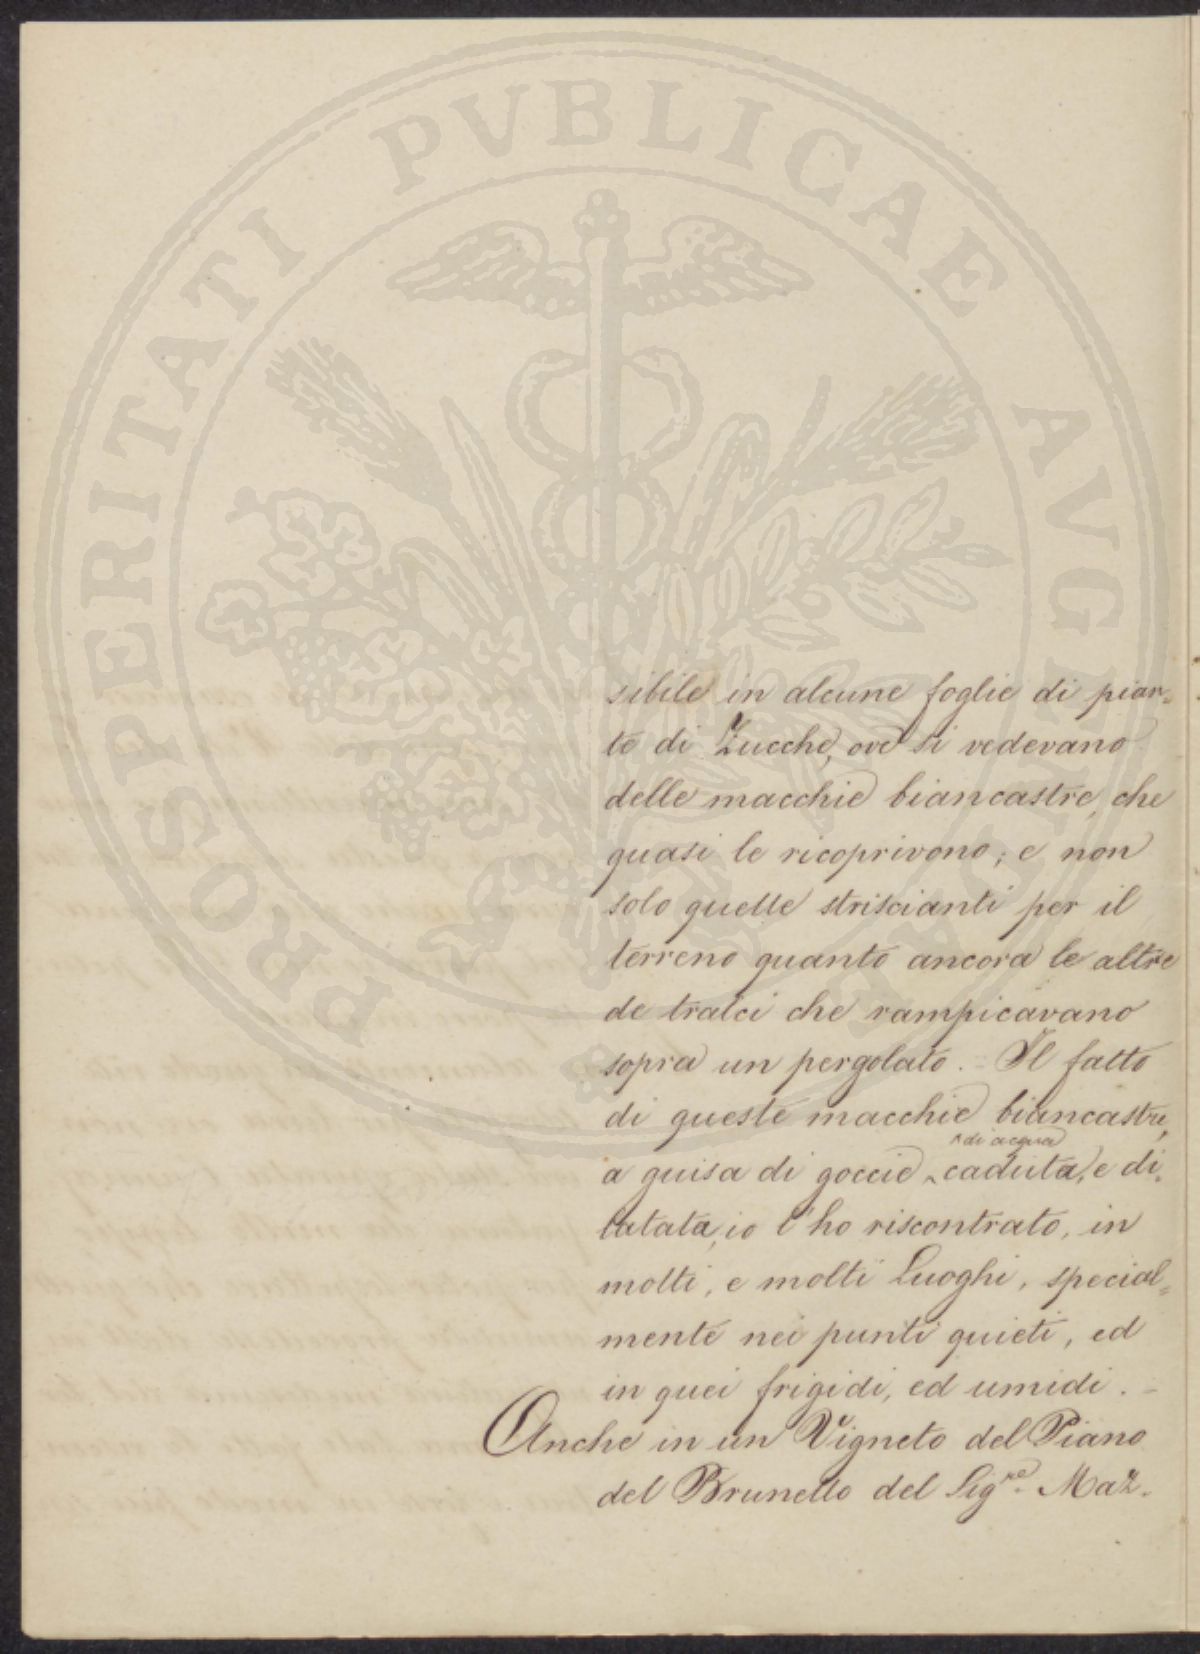 PROSPERITATI PVBLICAE AVGENDAE
sibile in alcune foglie di pian=
te di Zucche, ove si vedevano
delle macchie biancastre, che
quasi le ricoprivono; e non
solo quelle striscianti per il
terreno quanto ancora le altre
de tralci che rampicavano
sopra un pergolato. = Il fatto
di queste macchie biancastre,
di acqua
a guisa di goccie caduta, e di=
latata, io l'ho riscontrato, in
molti, e molti Luoghi, special=
mente nei punti quieti, ed
in quei frigidi, ed umidi. =
Anche in un Vigneto del Piano
del Brunello del Sig.re Maz=